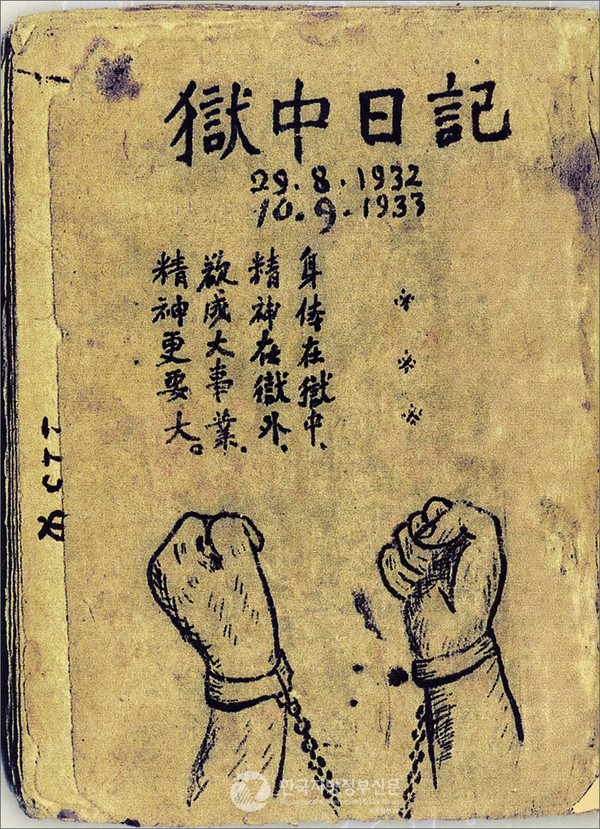 獄中日記
29.8.1932
10.9.1933
身体在獄中、
精神在獄外、
欲成大事業.
精神更要大。
한국지방정부신문